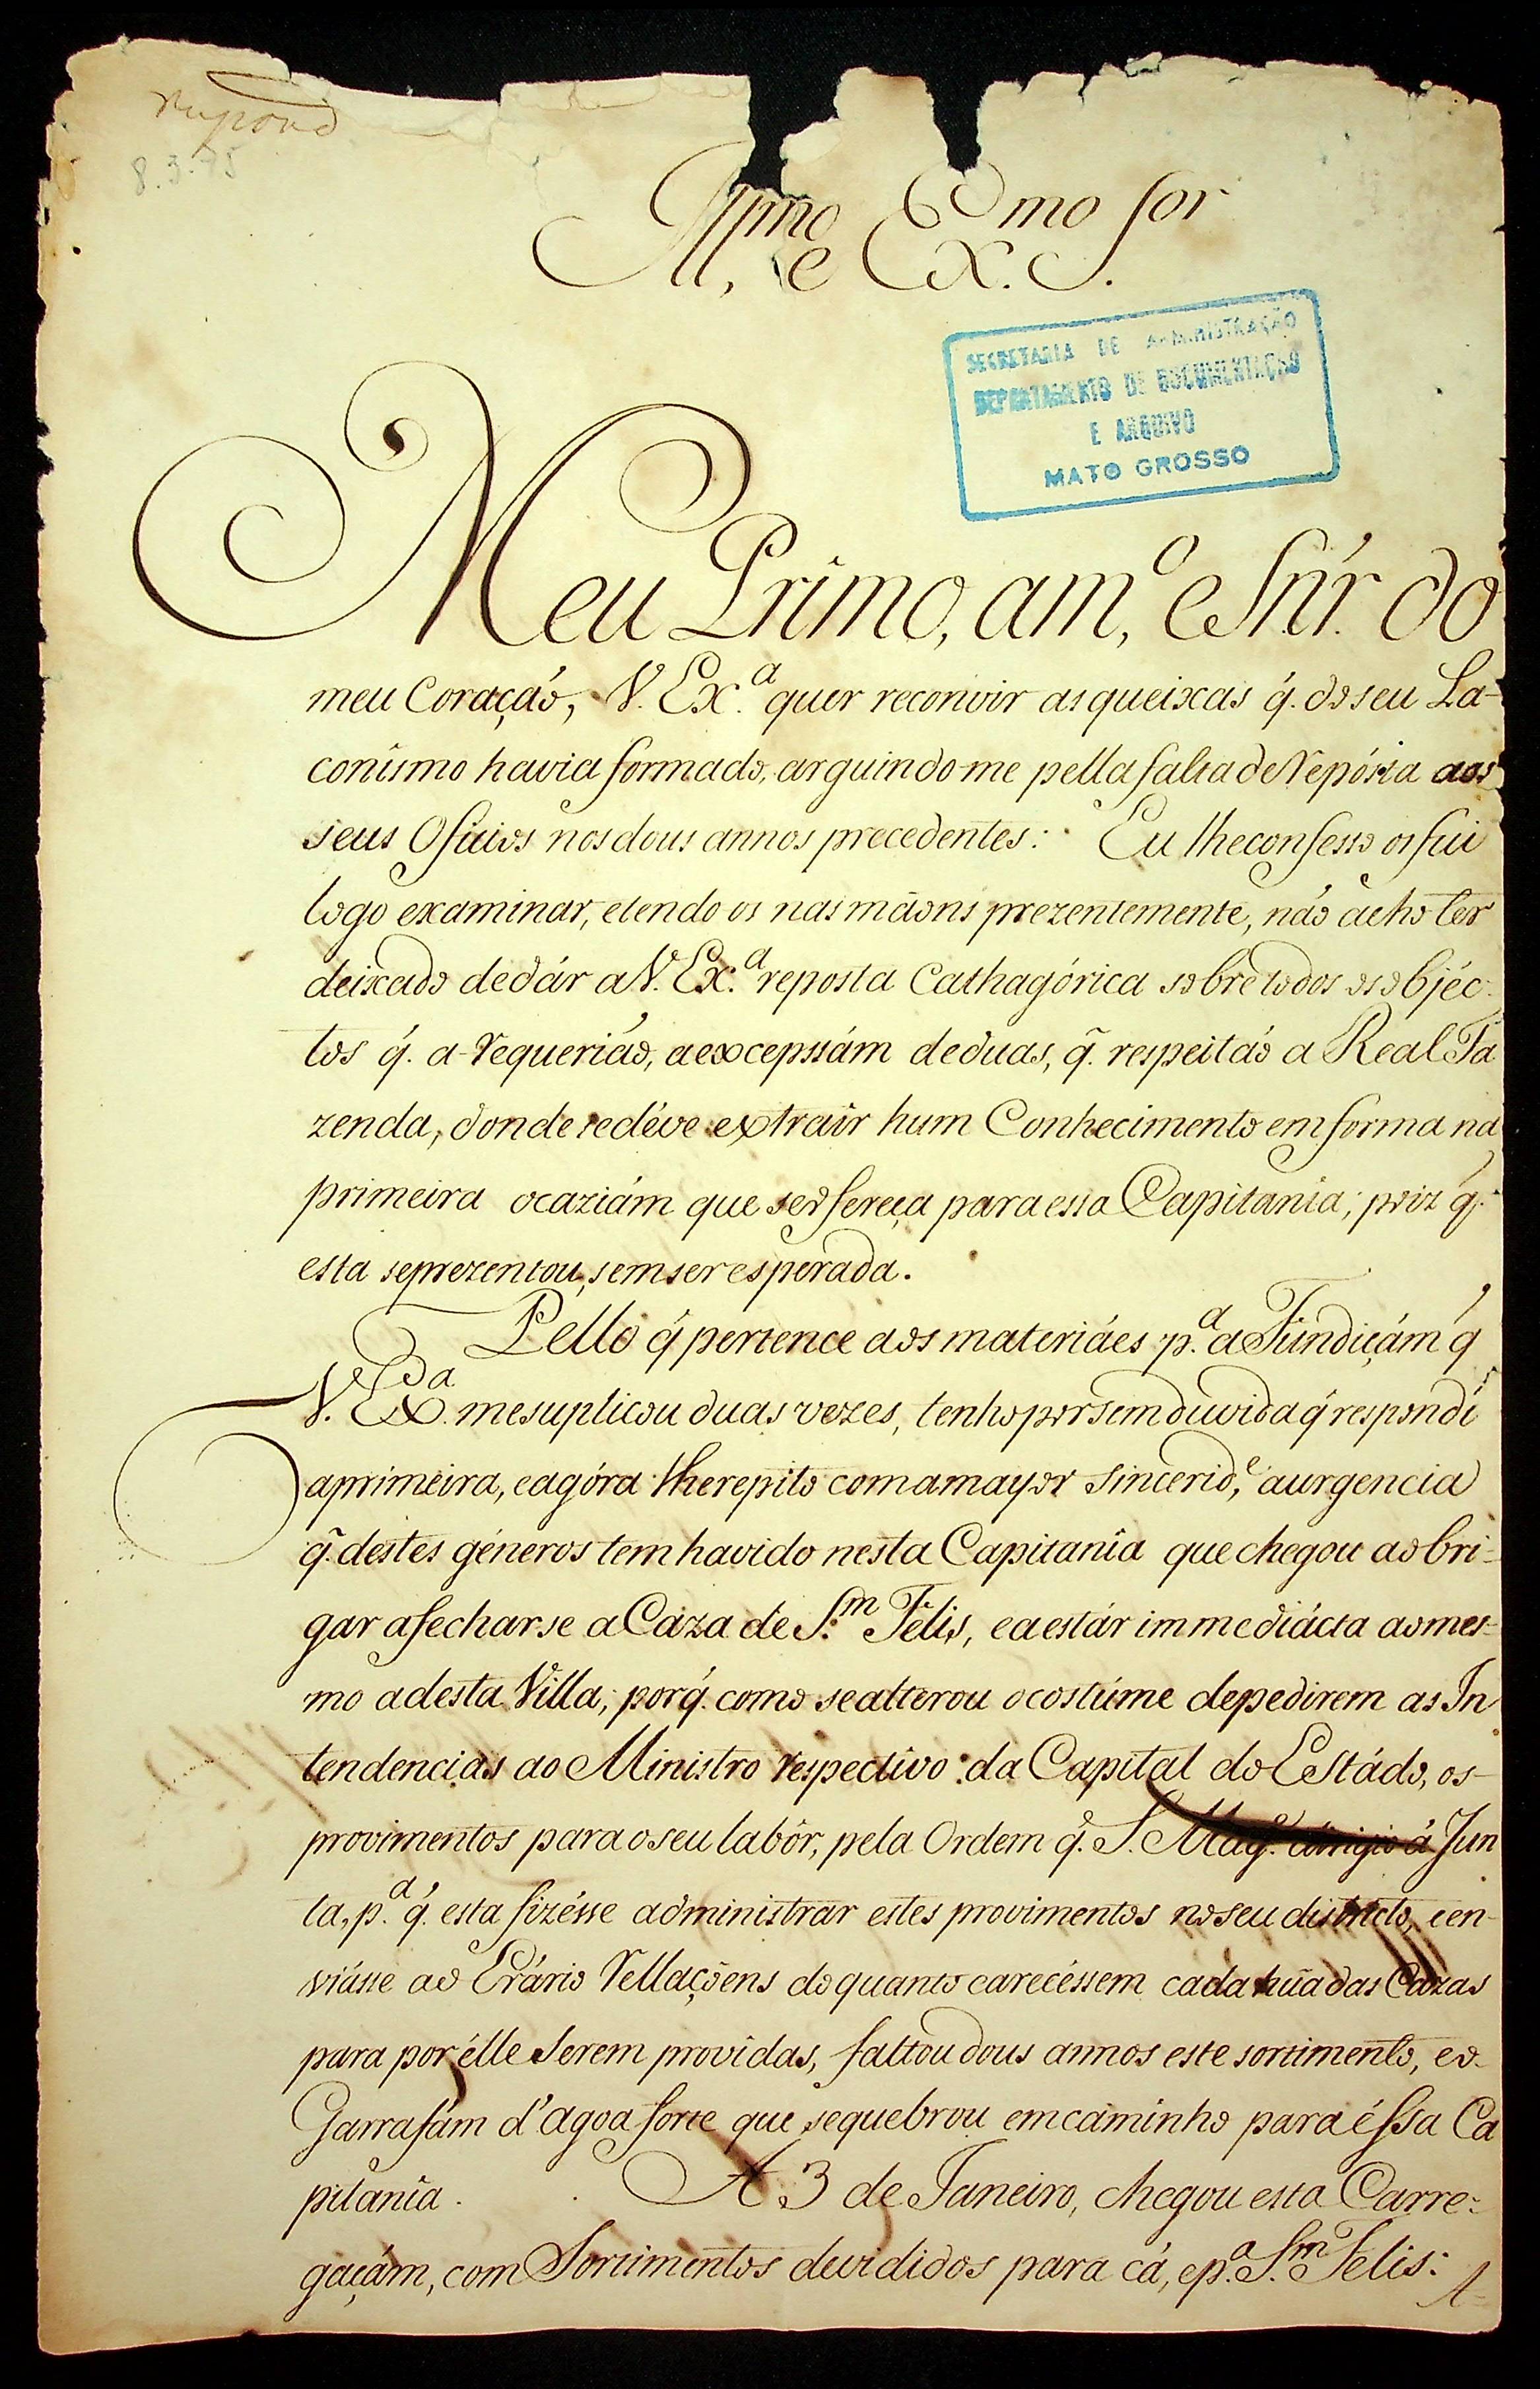 respond
8.3.75
Ill.mo e Ex.mo Sor
SECRETARIA DE ADMINISTRAÇÃO
DEPARTAMENTO DE DOCUMENTAÇÃO
E ARQUIVO
MATO GROSSO
Meu Primo, am.o e Snr. do
meu Coraçáo, V. Ex.a quer reconvir as queixas q. do seu La-
conismo havia formado, arguindo-me pella falta de Repósta aos
seus Oficios nos dous annos precedentes: Eu lhe confesso os fui
logo examinar, e tendo os nas mãons prezentemente, náo acho ter
deixado de dár a V. Ex.a reposta Cathagórica sobre todos os objéc-
tos q. a requeriáo, a excepssám de duas, q̃. respeitáo a Real Fa
zenda, donde se déve extraîr hum Conhecimento em forma na
primeira ocaziám que se ofereça para essa Capitania; poiz q.
esta se prezentou, sem ser esperada.
Pello q́ pertence aos materiáes p.a a Fundiçám q́
V. Ex.a me suplicou duas vezes, tenho por sem duvida q́ respondí
a primeira, e agóra lhe repito com a mayor Sincerid.e, a urgencia
q̃. destes géneros tem havido nesta Capitanîa que chegou a obri-
gar a fecharse a Caza de S.m Felis, e a estár immediácta ao mes-
mo a desta Villa; porq́. como se alterou o costúme de pedirem as In
tendencias ao Ministro respectivo da Capital do Estádo, os
provimentos para o seu labôr, pela Ordem q́. S. Mag.e dirigio á Jun
ta, p.a q́. esta fizésse administrar estes provimentos no seu districto, e en-
viásse ao Erário Rellaçóens do quanto carecéssem cada hũa das Cazas
para por élle serem provîdas, faltou dous annos este sortimento, e o
Garrafám d'agoa forte que se quebrou em caminho para éssa Ca
pitanîa. A 3 de Janeiro, chegou esta Carre-
gaçám, com Sortimentos devididos para cá, e p.a S.m Felis:
A-